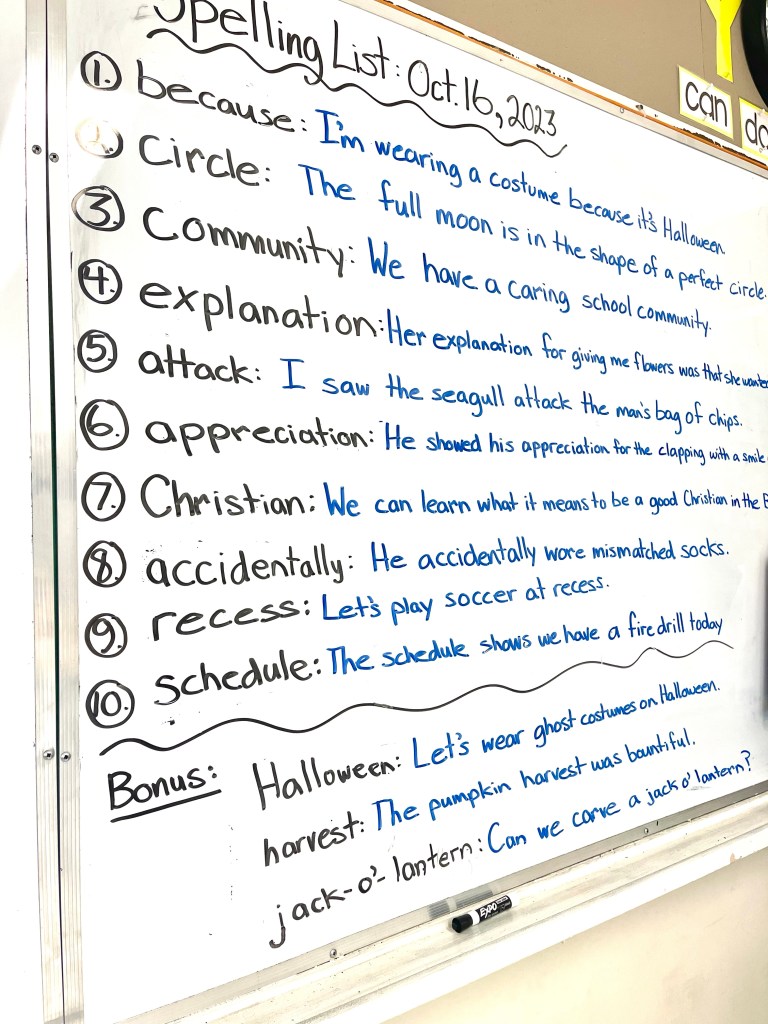 Spelling List: Oct. 16, 2023
1. because: I'm wearing a costume because it's Halloween
2. Circle: The full moon is in the shape of a perfect circle.
3. Community: We have a caring school community.
4. explanation: Her explanation for giving me flowers was that she
5. attack: I saw the seagull attack the man's bag of chips.
6. appreciation: He showed his appreciation for the clapping with a smile
7. Christian: We can learn what it means to be a good Christian in the
8. accidentally: He accidentally wore mismatched socks.
9. recess: Let's play soccer at recess.
10. schedule: The schedule shows we have a fire drill today
Bonus: Halloween: Let's wear ghost costumes on Halloween.
harvest: The pumpkin harvest was bountiful.
jack-o'-lantern: Can we carve a jack o' lantern?
can
EXPO